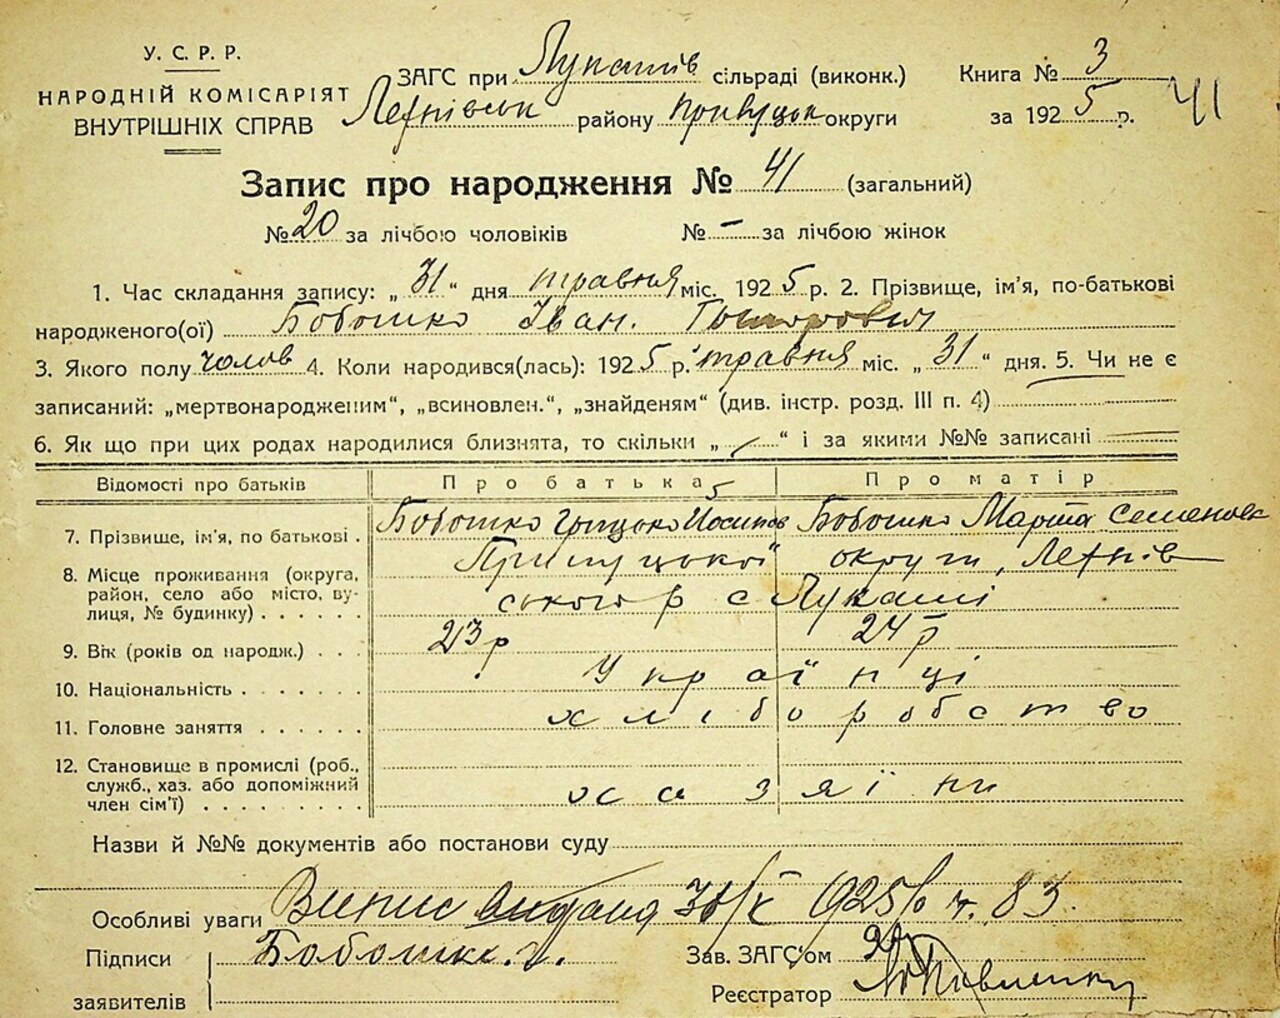 У. С. Р. Р.
НАРОДНІЙ КОМІСАРІЯТ
ВНУТРІШНІХ СПРАВ
ЗАГС при Лукашів сільраді (виконк.)
районy округи
Книга № 3
за 1925 р.
41
Запис про народження № 41 (загальний)
№ 20 за лічбою чоловіків № – за лічбою жінок
1. Час складання запису: „ 31 “ дня травня міс. 1925 р. 2. Прізвище, ім'я, по-батькові
народженого(ої) Бобошко Іван.
3. Якого полу чолов 4. Коли народився(лась): 1925 р. травня міс. „ 31 “ дня. 5. Чи не є
записаний: „мертвонародженим“, „всиновлен.“, „знайденям“ (див. інстр. розд. III п. 4)
6. Як що при цих родах народилися близнята, то скільки „ “ і за якими №№ записані
Відомості про батьків Про батька Про матір
7. Прізвище, ім'я, по батькові . Бобошко Грицько Йосипов Бобошко Марта Семенов
8. Місце проживання (округа, район, село або місто, вулиця, № будинку) . . . . . . Прилуцької округи,
ського р с Лукаші
9. Вік (років од народж.) . . . 23 р 24 р
10. Національність . . . . . . . Українці
11. Головне заняття . . . . . . хліборобство
12. Становище в промислі (роб.,
служб., хаз. або допоміжний
член сім'ї) . . . . . . . . . хазяїни
Назви й №№ документів або постанови суду
Особливі уваги Випис 925 83.
Підписи заявителів Бобошко. г.
Зав. ЗАГС'ом
Реєстратор